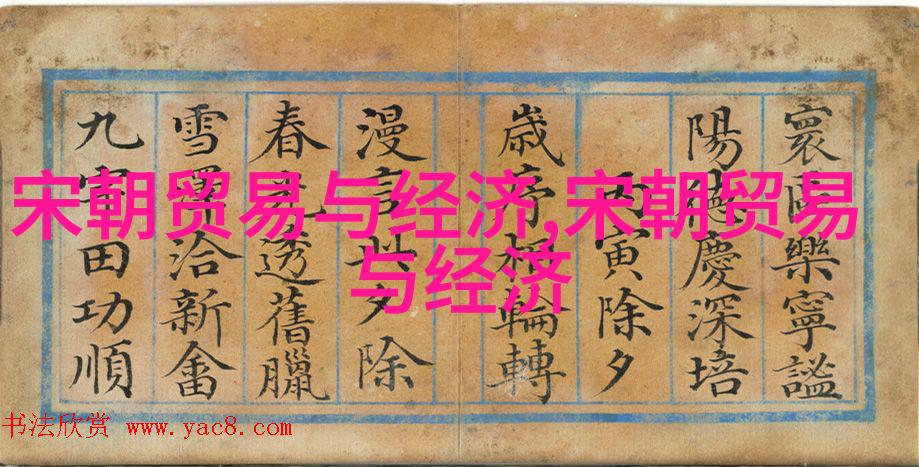 宋朝贸易与经济,宋朝贸易
与经济
寰區樂寧謐
陽德慶深培
丙寅除夕
歲序輪轉
漫言此夕除
春透舊臘
雪澤洽新畬
九田功順
书法欣赏 www.yac8.com